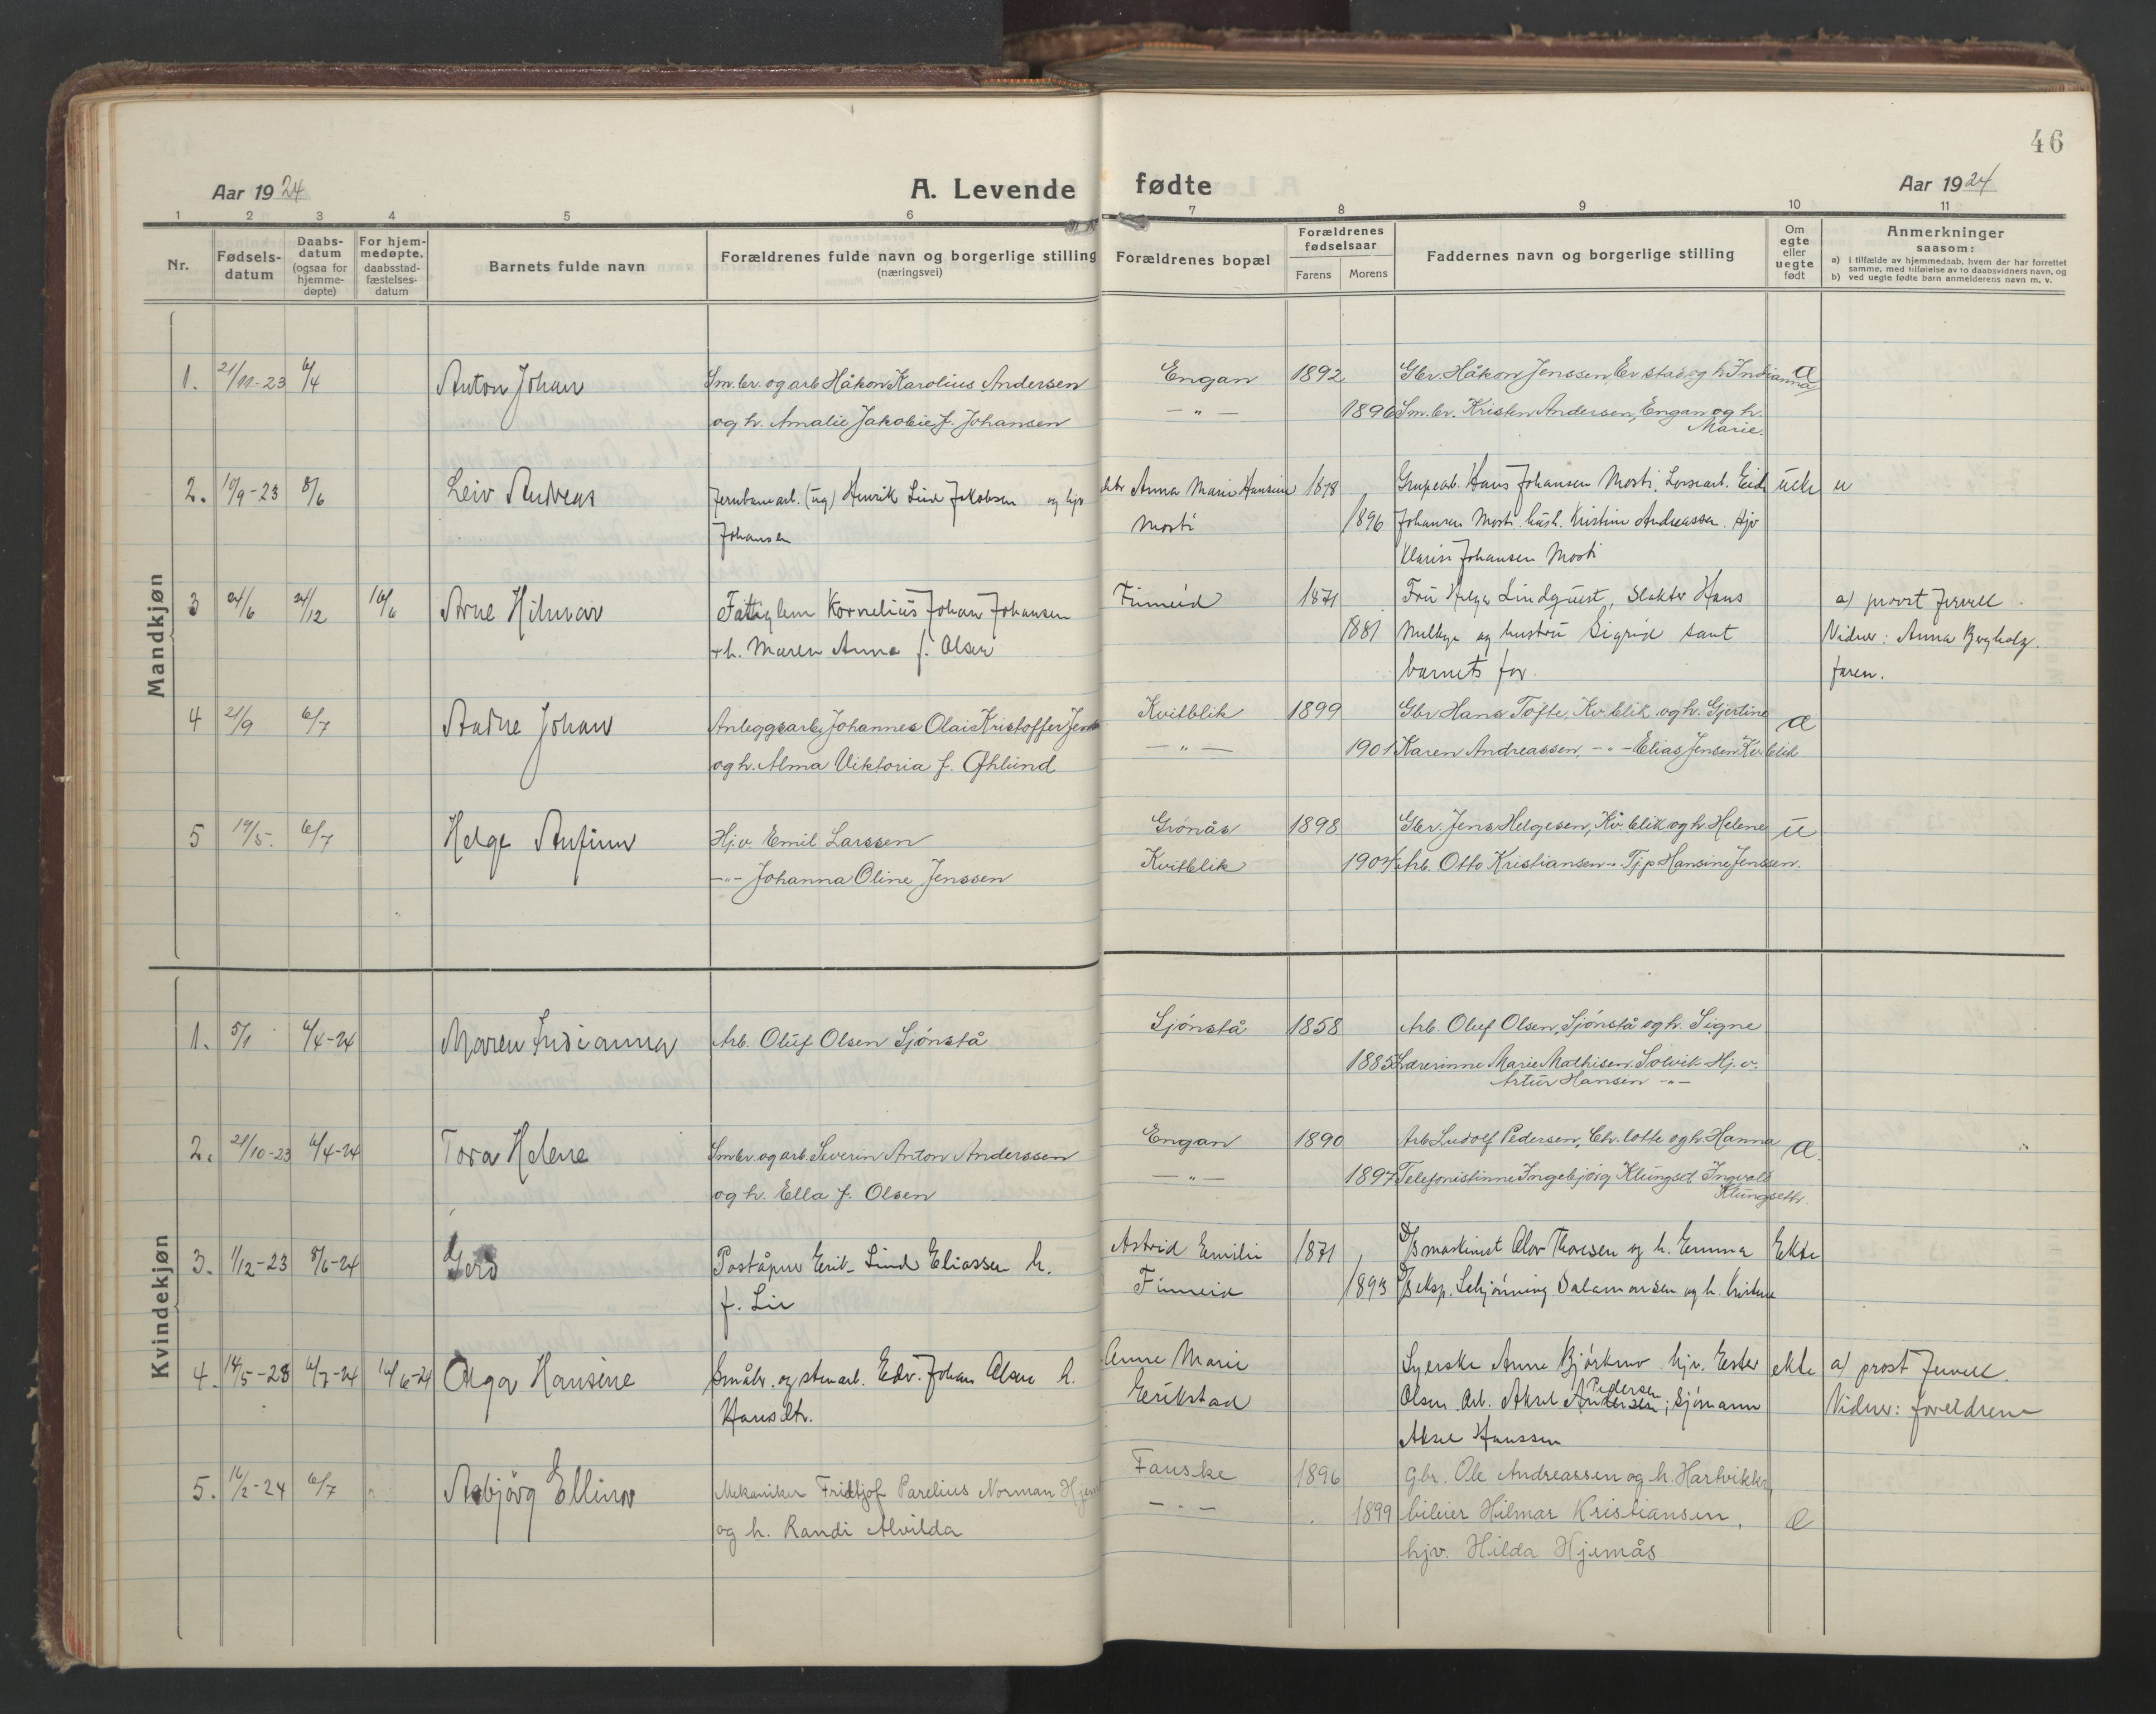 46
Aar 1924 A. Levende fødte Aar 1924
1 2 3 4 5 6 7 8 9 10 11
Nr. Fødsels-datum Daabs-datum (ogsaa for hjemme-døpte) For hjem-medøpte, daabsstad-fæstelses-datum Barnets fulde navn Forældrenes fulde navn og borgerlige stilling (næringsvei) Forældrenes bopæl Forældrenes fødselsaar Farens Morens Faddernes navn og borgerlige stilling Om egte eller uegte født Anmerkninger saasom:
a) i tilfælde av hjemmedaab, hvem der har forrettet samme, med tilføielse av to daabsvidners navn, og
b) ved uegte fødte barn anmelderens navn m. v.
Mandkjøn
1. 21/11-23 6/4 Anton Johan Sm.br. og arb Håkon Karolius Andersen Engan 1892 Gbr. Håkon Jenssen, Erstad og h. Indianna e
og h. Amalie Jakobie f. Johansen —"— 1896 Sm.br. Kristen Andersen, Engan og h.
Marie.
2. 10/9-23 8/6 Leiv Andreas Jernbanearb. (ug) Henrik Lind Jakobsen og hjv Anna Marie Hansine 1878 Grupearb. Hans Johansen Mosti. Losjearb. Eide uekte u
Johansen Mosti 1896 Johansen Mosti. hush. Kristine Andreassen. Hjv
Klaris Johansen Mosti
3 24/6 24/12 16/6 Arne Hilmar Fattiglem Kornelius Johan Johansen Finneid 1871 Fru Helga Lindquist, Slakter Hans a) provst Jervell.
+h. Maren Anna f. Olsen 1881 og hustru Sigrid samt Vidner: Anna Bergholz.
barnets far. faren.
4 21/9 6/7 Audne Johan Anleggsarb. Johannes Olai Kristoffer Kvitblik 1899 Gbr Hans Tofte, Kv.blik og h. Gjertine e
og h. Alma Viktoria f. Øhlund —"— 1901 Karen Andreassen, -"- Elias Jensen Kv.blik
5 19/5. 6/7 Helge Anfinn Hj.v. Emil Larssen Grønås 1898 Gbr. Jens Helgesen, Kv.blik og h. Helene u
—"— Johanna Oline Jenssen Kvitblik 1904 Arb. Otto Kristiansen -"- Tjp Hansine Jenssen.
Kvindekjøn
1. 5/1 6/4-24 Maren Indianna Arb. Oluf Olsen Sjønstå Sjønstå 1858 Arb. Oluf Olsen, Sjønstå og h. Signe
1885 Lærerinne Marie Mathisen. Solvik Hj.v.
Artur Hansen -"-
2. 21/10-23 6/4-24 Tora Helene Smbr. og arb. Severin Anton Anderssen Engan 1890 Arb. Ludolf Pedersen, Ch.lotte og h. Hanna e.
og h. Ella f. Olsen —"— 1897 Telefonistinne Ingebjørg Klungset, Ingvald
Klungseth.
3. 1/12-23 8/6-24 Gerd Poståpner Erik Lind Eliassen h. Astrid Emilie 1871 D/S maskinist Olov Thoresen og h. Emma Ekte
f. Lie Finneid 1893 D/S eksp. Schjønning Salamonsen og h. Kristine
4. 14/5-23 6/7-24 16/6-24 Olga Hansine Småbr. og stenarb. Edv. Johan Olsen h. Anne Marie Syerske Anne hjv. Ester ekte a) prost Jervell.
Hansdtr. Erikstad Olsen. Arb. Aksel Andersen Pedersen; Sjømann Vidner: foreldrene
Aksel Hanssen
5. 16/2-24 6/7 Asbjörg Ellinor Mekaniker Fridtjof Parelius Norman Fauske 1896 Gbr. Ole Andreassen og h. Hartvikka,
og h. Randi Alvilda —"— 1899 bileier Hilmar Kristiansen, e
hjv. Hilda Hjemås